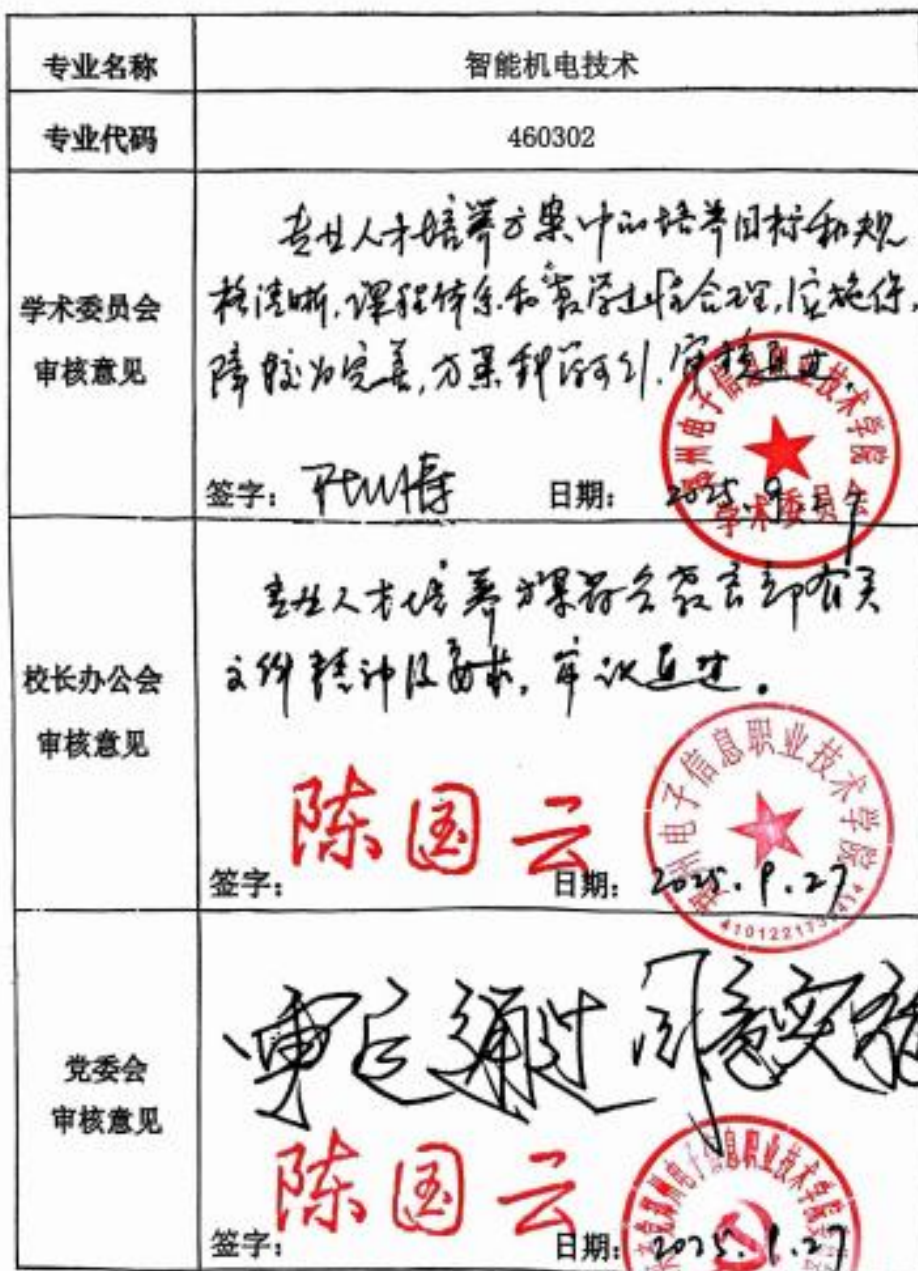 专业名称 智能机电技术
专业代码 460302
学术委员会
审核意见
专业人才培养方案中的培养目标和规
格清晰,课程体系和教学进程合理,实施保
障较为完善,方案科学可行,审核通过
签字: 日期: 2025.9.
电子信息职业技术学院
学术委员会
校长办公会
审核意见
专业人才培养方案符合教育部有关
文件精神及要求,审议通过。
陈国云
签字: 日期: 2025.9.27
州电子信息职业技术学院
党委会
审核意见
审定通过 同意实施
陈国云
签字: 日期: 2025.9.27
州电子信息职业技术学院